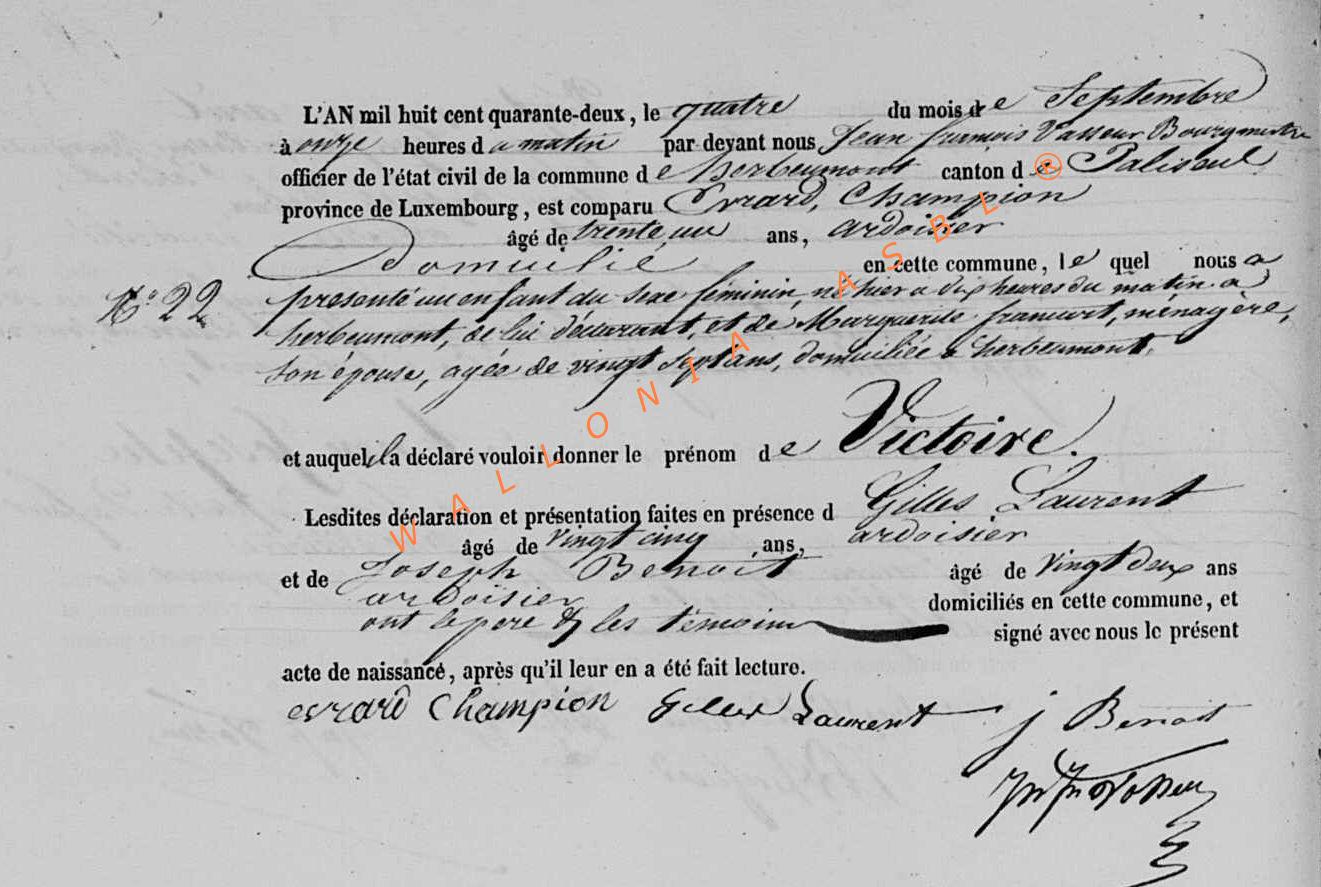 L'AN mil huit cent quarante-deux, le quatre du mois de Septembre
à onze heures d u matin par devant nous Jean françois Vasseur Bourgmestre
officier de l'état civil de la commune d e herbeumont canton d e Paliseul
province de Luxembourg, est comparu Evrard, Champion
âgé de trente un ans, ardoisier
domicilié en cette commune, le quel nous a
N.° 22 présenté un enfant du sexe féminin, né hier a dix heures du matin a
herbeumont, de lui déclarant, et de Marguerite francurt, ménagère,
son épouse, agée de vingt Sept ans, domiciliée a herbeumont,
et auquel il a déclaré vouloir donner le prénom d e Victoire.
Lesdites déclaration et présentation faites en présence d Gilles Laurent
âgé de vingt cinq ans, ardoisier
et de Joseph Benoit âgé de vingt deux ans
ardoisier domiciliés en cette commune, et
ont le pere & les témoins signé avec nous le présent
acte de naissance, après qu'il leur en a été fait lecture.
evrard Champion Gilles Laurent j Benoit
WALLONIA ASBL ®